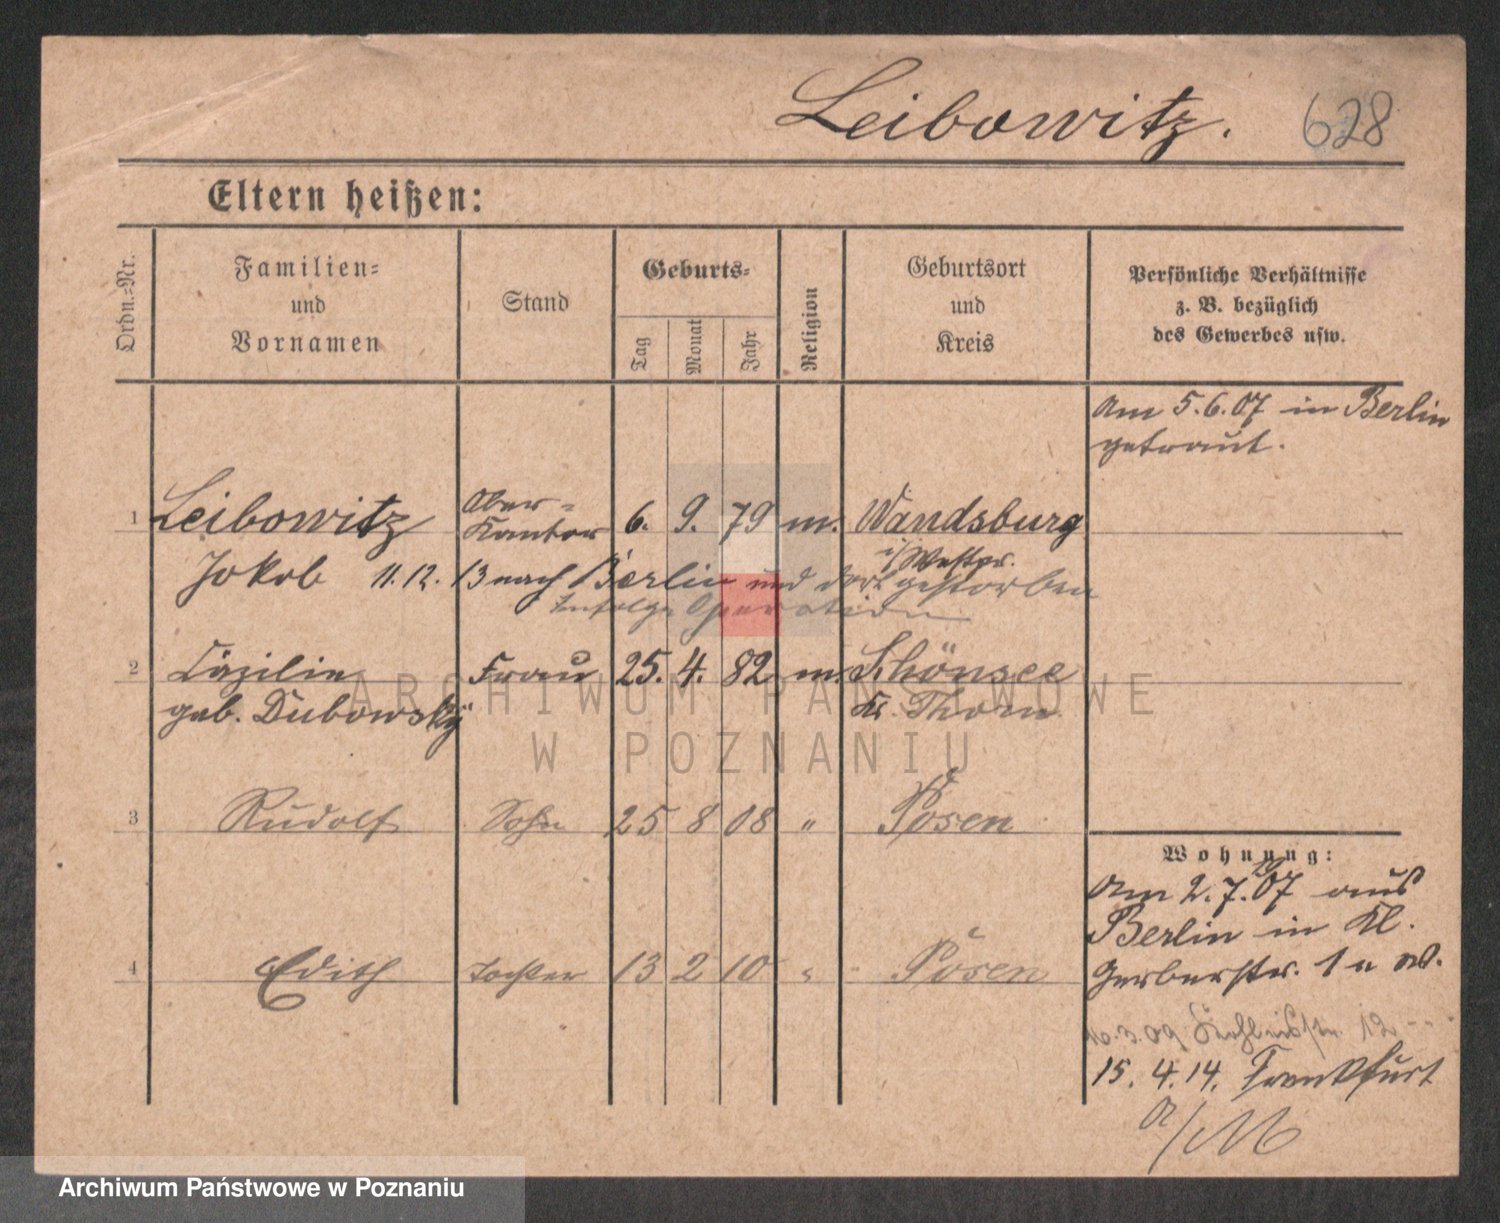 Leibowitz. 628
Eltern heißen:
Ordn.-Nr.
Familien-
und
Vornamen
Stand
Geburts-
Tag
Monat
Jahr
Religion
Geburtsort
und
Kreis
Persönliche Verhältnisse
z. B. bezüglich
des Gewerbes usw.
Am 5.6.07 in Berlin
getraut.
1 Leibowitz Ober-Kantor 6. 9. 79 m. Wandsburg
i/Westpr.
Jakob 11.12.13 nach Berlin und dort gestorben
infolge Operation
2 Cäzilie Frau 25. 4. 82 m. Schönsee
geb. Dubowsky Kr. Thorn
3 Rudolf Sohn 25 8 08 " Posen
4 Edith Tochter 13 2 10 " Posen
Wohnung:
Am 2.7.07 aus
Berlin in Kl.
Gerberstr. 1 a W.
16.3.09 12
15.4.14. Frankfurt
a/M
ARCHIWUM PAŃSTWOWE
W POZNANIU
Archiwum Państwowe w Poznaniu